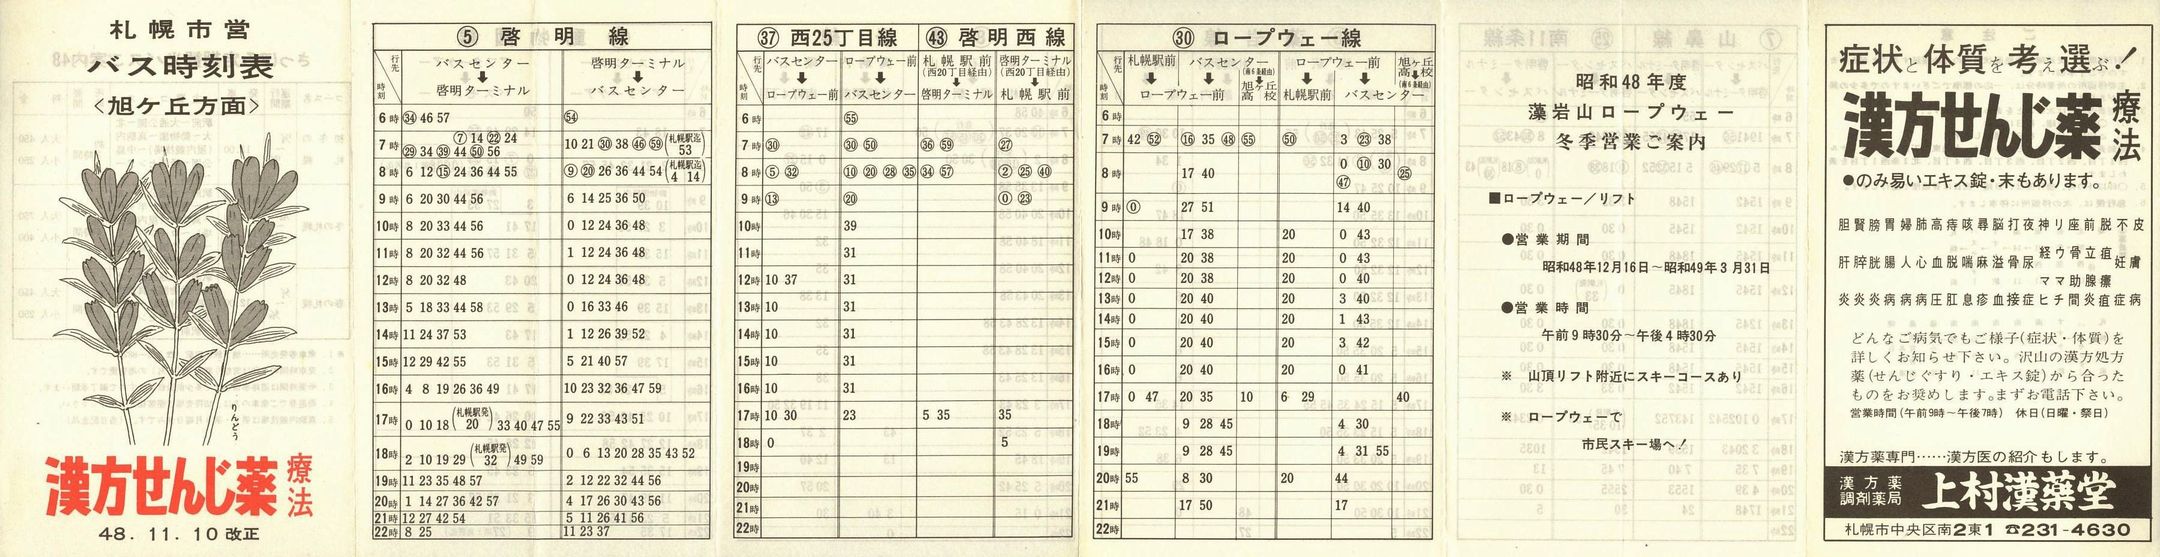 札幌市営
バス時刻表
<旭ケ丘方面>
りんどう
漢方せんじ薬 療法
48. 11. 10 改正
⑤ 啓明線
行先 時刻 バスセンター ↓ 啓明ターミナル 啓明ターミナル ↓ バスセンター
6時 ㉞ 46 57 54
7時 ⑦ 14 ㉒ 24 ㉙ 34 ㊴ 44 ㊿ 56 10 21 ㉚ 38 ㊻ 59 (札幌駅迄 53)
8時 6 12 ⑮ 24 36 44 55 ⑨ ⑳ 26 36 44 54 (札幌駅迄 4 14)
9時 6 20 30 44 56 6 14 25 36 50
10時 8 20 33 44 56 0 12 24 36 48
11時 8 20 32 44 56 1 12 24 36 48
12時 8 20 32 48 0 12 24 36 48
13時 5 18 33 44 58 0 16 33 46
14時 11 24 37 53 1 12 26 39 52
15時 12 29 42 55 5 21 40 57
16時 4 8 19 26 36 49 10 23 32 36 47 59
17時 0 10 18 (札幌駅発 20) 33 40 47 55 9 22 33 43 51
18時 2 10 19 29 (札幌駅発 32) 49 59 0 6 13 20 28 35 43 52
19時 11 23 35 48 57 2 12 22 32 44 56
20時 1 14 27 36 42 57 4 17 26 30 43 56
21時 12 27 42 54 5 11 26 41 56
22時 8 25 11 23 37
㊲ 西25丁目線 ㊸ 啓明西線
行先 時刻 バスセンター ↓ ロープウェー前 ロープウェー前 ↓ バスセンター 札幌駅前 (西20丁目経由) ↓ 啓明ターミナル 啓明ターミナル (西20丁目経由) ↓ 札幌駅前
6時 55
7時 ㉚ ㉚ ㊿ ㊱ 59 ㉗
8時 ⑤ ㉜ ⑩ ⑳ ㉘ ㉟ ㉞ 57 ② ㉕ ㊵
9時 ⑬ ⑳ ⓪ ㉓
10時 39
11時 31
12時 10 37 31
13時 10 31
14時 10 31
15時 10 31
16時 10 31
17時 10 30 23 5 35 35
18時 0 5
19時
20時
21時
22時
㉚ ロープウェー線
行先 時刻 札幌駅前 バスセンター ↓ ロープウェー前 (南6条経由) ↓ 旭ヶ丘高校 ロープウェー前 ↓ 札幌駅前 バスセンター 旭ヶ丘高校 (南6条経由) ↓
6時
7時 42 52 ⑯ 35 ㊽ 55 ㊿ 3 ㉓ 38
8時 17 40 0 ⑩ 30 ㊼ ㉕
9時 ⓪ 27 51 14 40
10時 17 38 20 0 43
11時 0 20 38 20 0 43
12時 0 20 38 20 0 40
13時 0 20 40 20 3 40
14時 0 20 40 20 1 43
15時 0 20 40 20 3 42
16時 0 20 40 20 0 41
17時 0 47 20 35 10 6 29 40
18時 9 28 45 4 30
19時 9 28 45 4 31 55
20時 55 8 30 20 44
21時 17 50 17
22時
昭和48年度
藻岩山ロープウェー
冬季営業ご案内
■ロープウェー/リフト
●営業期間
昭和48年12月16日～昭和49年3月31日
●営業時間
午前9時30分～午後4時30分
※ 山頂リフト附近にスキーコースあり
※ ロープウェーで
市民スキー場へ!
症状と体質を考え選ぶ!
漢方せんじ薬 療法
●のみ易いエキス錠・末もあります。
胆腎膀胃婦肺高痔咳尋脳打夜神リ座前脱不皮
肝膵胱腸人心血脱喘麻溢骨尿経ウ骨立疽妊膚
ママ助腺癢
炎炎炎病病病圧肛息疹血接症ヒチ間炎疽症病
どんなご病気でもご様子(症状・体質)を
詳しくお知らせ下さい。沢山の漢方処方
薬(せんじぐすり・エキス錠)から合った
ものをお奨めします。まずお電話下さい。
営業時間(午前9時～午後7時) 休日(日曜・祭日)
漢方薬専門……漢方医の紹介もします。
漢方薬 調剤薬局 上村漢薬堂
札幌市中央区南2東1 ☎231-4630